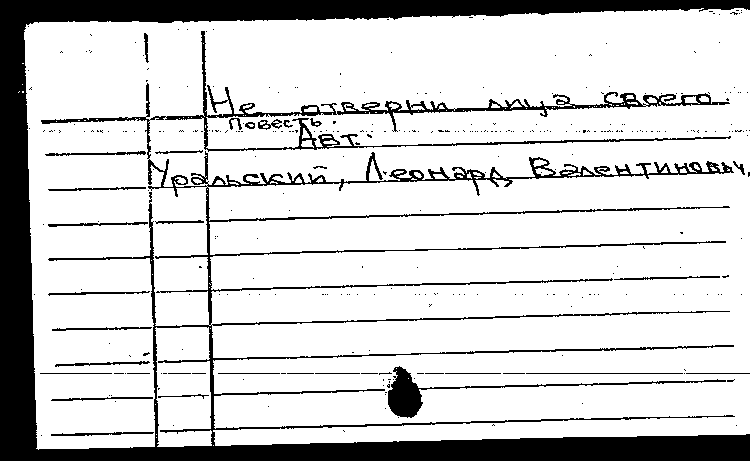 Не отверни лица своего.
Повесть.
Авт:
Уральский, Леонард Валентинович.